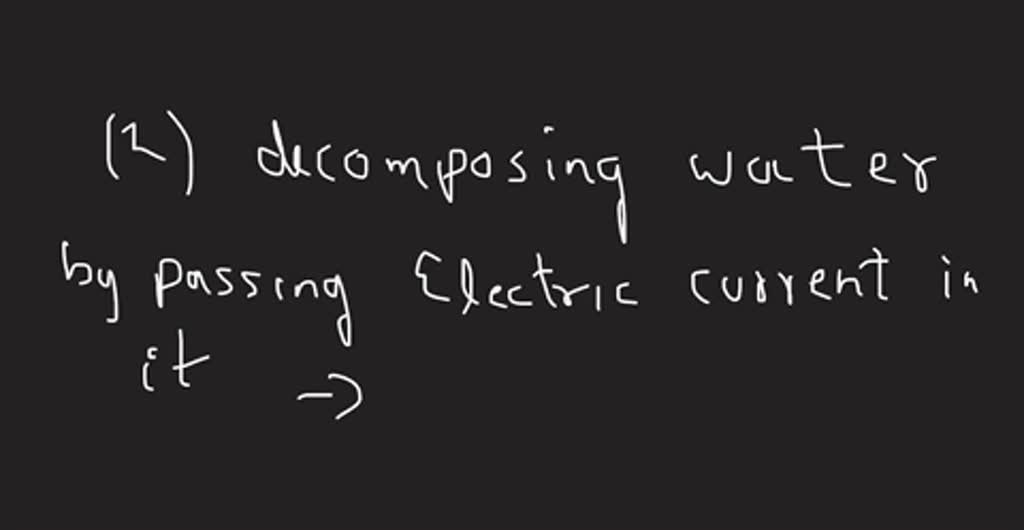 (2) decomposing water
by passing Electric current in
it →